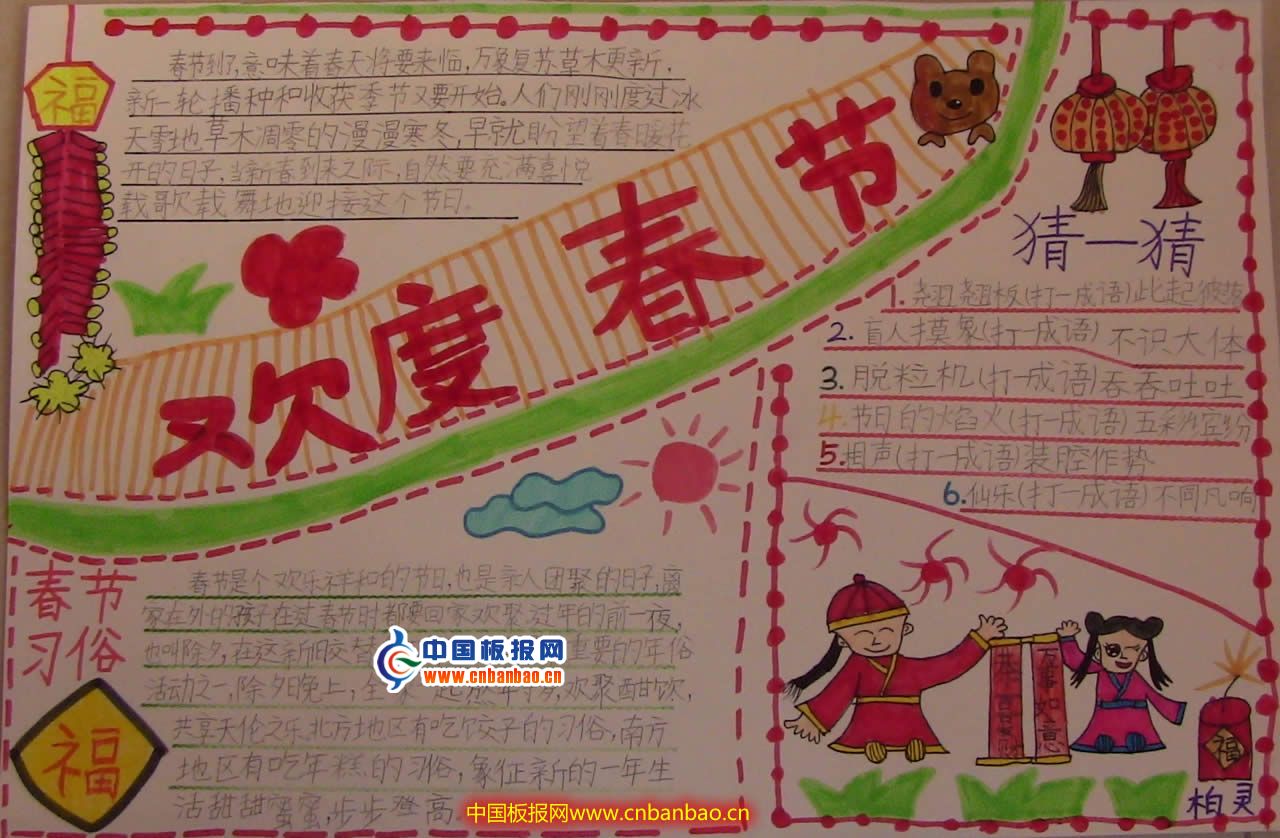 福
春节到了,意味着春天将要来临,万象复苏草木更新,
新一轮播种和收获季节又要开始。人们刚刚度过冰
天雪地草木凋零的漫漫寒冬,早就盼望着春暖花
开的日子,当新春到来之际,自然要充满喜悦
载歌载舞地迎接这个节日。
欢度春节
猜一猜
1.翘翘板(打一成语)此起彼落
2.盲人摸象(打一成语)不识大体
3.脱粒机(打一成语)吞吞吐吐
4.节日的焰火(打一成语)五彩缤纷
5.相声(打一成语)装腔作势
6.仙乐(打一成语)不同凡响
春节
习俗
春节是个欢乐祥和的节日,也是亲人团聚的日子,离
家在外的孩子在过春节时都要回家欢聚.过年的前一夜,
也叫除夕,在这新旧交替 重要的年俗
活动之一,除夕晚上,全 欢聚酣饮,
共享天伦之乐.北方地区有吃饺子的习俗,南方
地区有吃年糕的习俗,象征新的一年生
活甜甜蜜蜜,步步登高
福
中国板报网
www.cnbanbao.cn
恭喜发财
万事如意
福
柏灵
中国板报网www.cnbanbao.cn